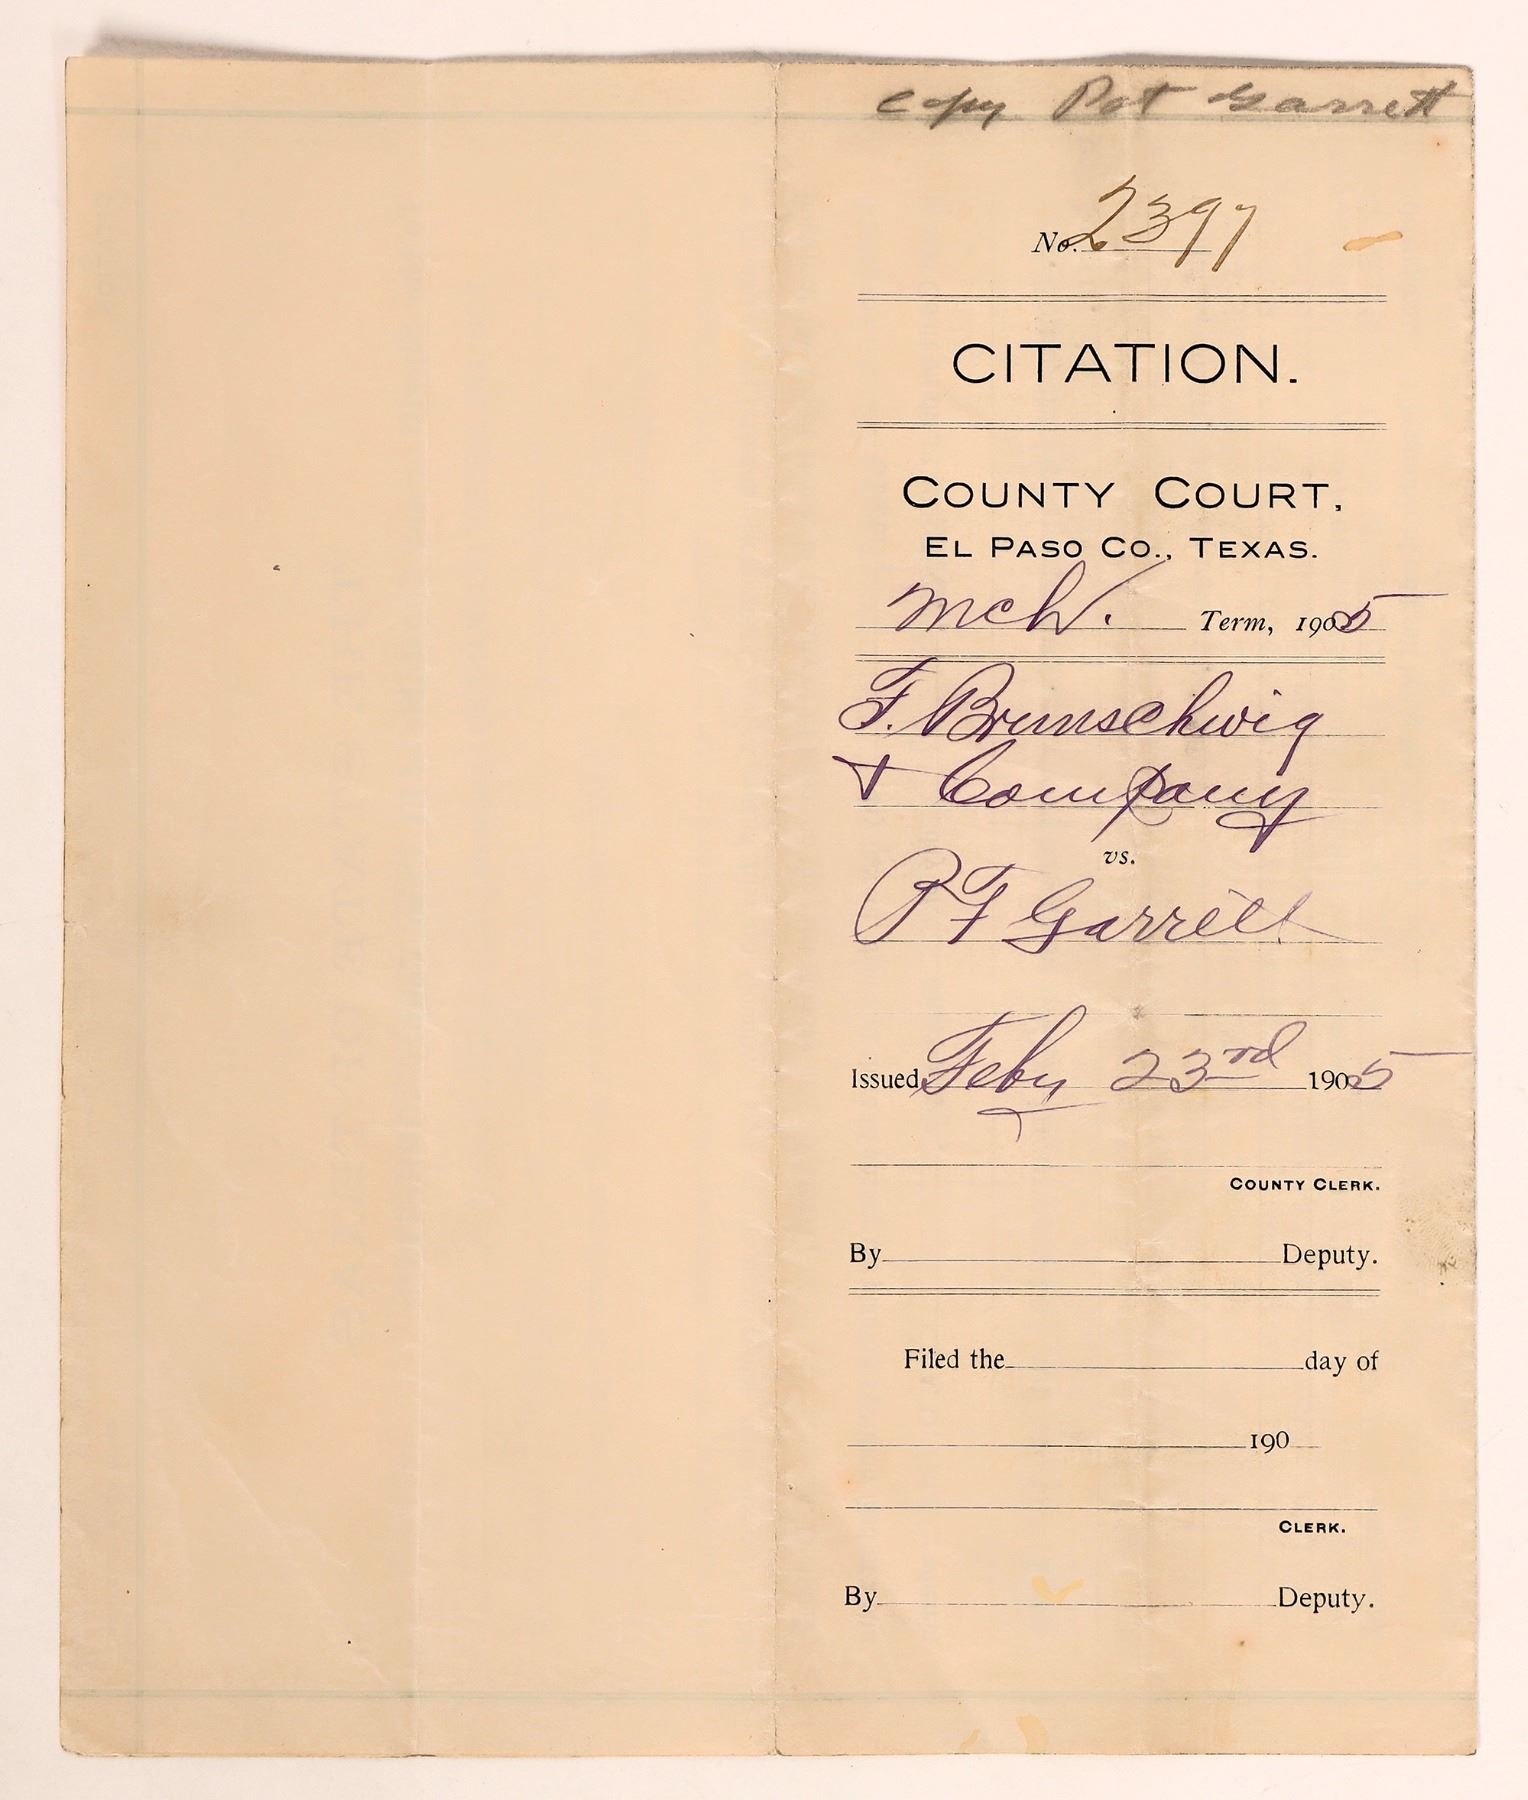 copy Pat Garrett
No. 2397
CITATION.
COUNTY COURT,
EL PASO CO., TEXAS.
Mch. Term, 1905
F. Brunschwig
& Company
vs.
P F Garrett
Issued Feby 23rd 1905
COUNTY CLERK.
By Deputy.
Filed the day of
190
CLERK.
By Deputy.